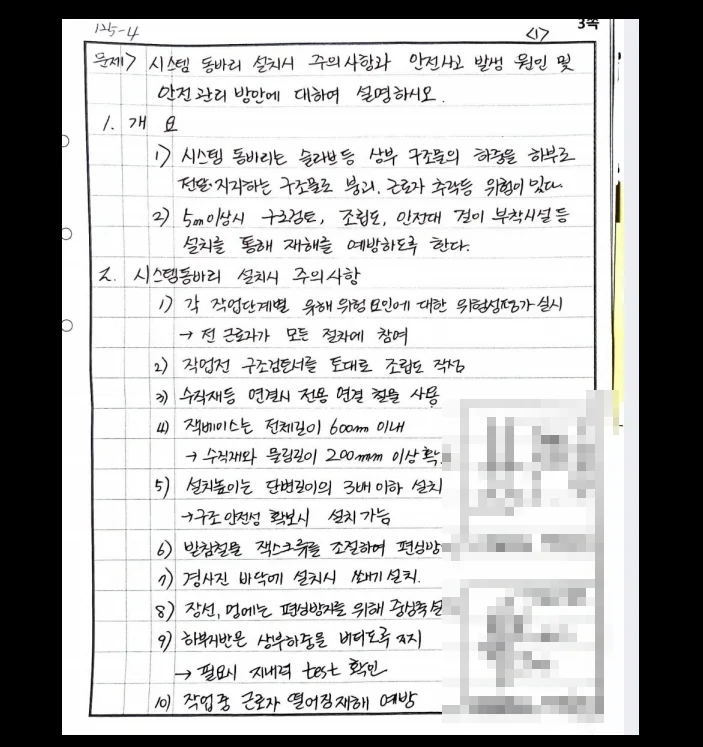 125-4
<1>
3쪽
문제> 시스템 동바리 설치시 주의사항과 안전사고 발생 원인 및
안전관리 방안에 대하여 설명하시오.
1. 개 요
1) 시스템 동바리는 슬라브등 상부 구조물의 하중을 하부로
전달·지지하는 구조물로 붕괴, 근로자 추락등 위험이 있다.
2) 5m이상시 구조검토, 조립도, 안전대 걸이 부착시설 등
설치를 통해 재해를 예방하도록 한다.
2. 시스템동바리 설치시 주의사항
1) 각 작업단계별 유해위험요인에 대한 위험성평가 실시
→ 전 근로자가 모든 절차에 참여
2) 작업전 구조검토서를 토대로 조립도 작성
3) 수직재등 연결시 전용 연결 철물 사용
4) 잭베이스는 전체길이 600mm 이내
→ 수직재와 물림길이 200mm 이상 확
5) 설치높이는 단변길이의 3배 이하 설치
→ 구조 안전성 확보시 설치 가능
6) 받침철물 잭스크류를 조절하여 편심방
7) 경사진 바닥에 설치시 쐐기 설치.
8) 장선, 멍에는 편심방지를 위해 중심축 설
9) 하부지반은 상부하중을 버티도록 지지
→ 필요시 지내력 test 확인
10) 작업중 근로자 떨어짐 재해 예방